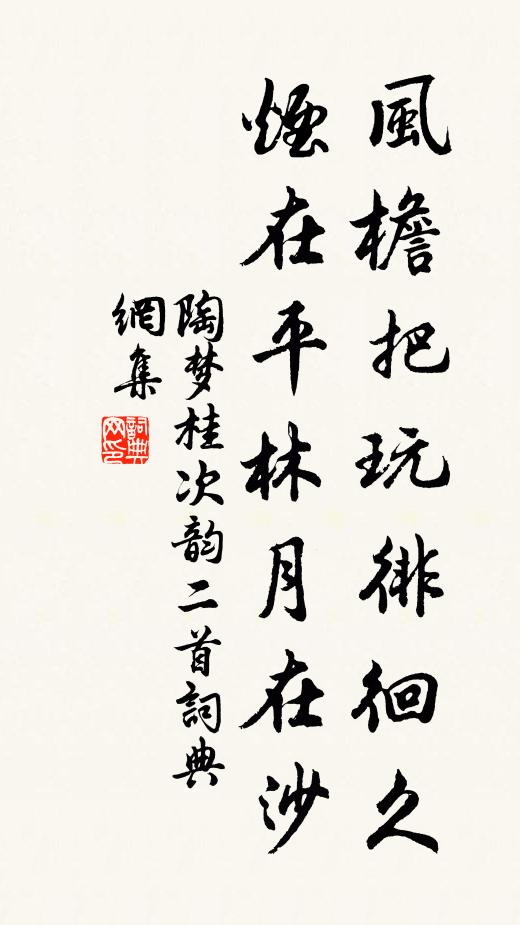 風檐把玩徘徊久
煙在平林月在沙
陶梦桂次韵二首詞典
網集
詞典
网印